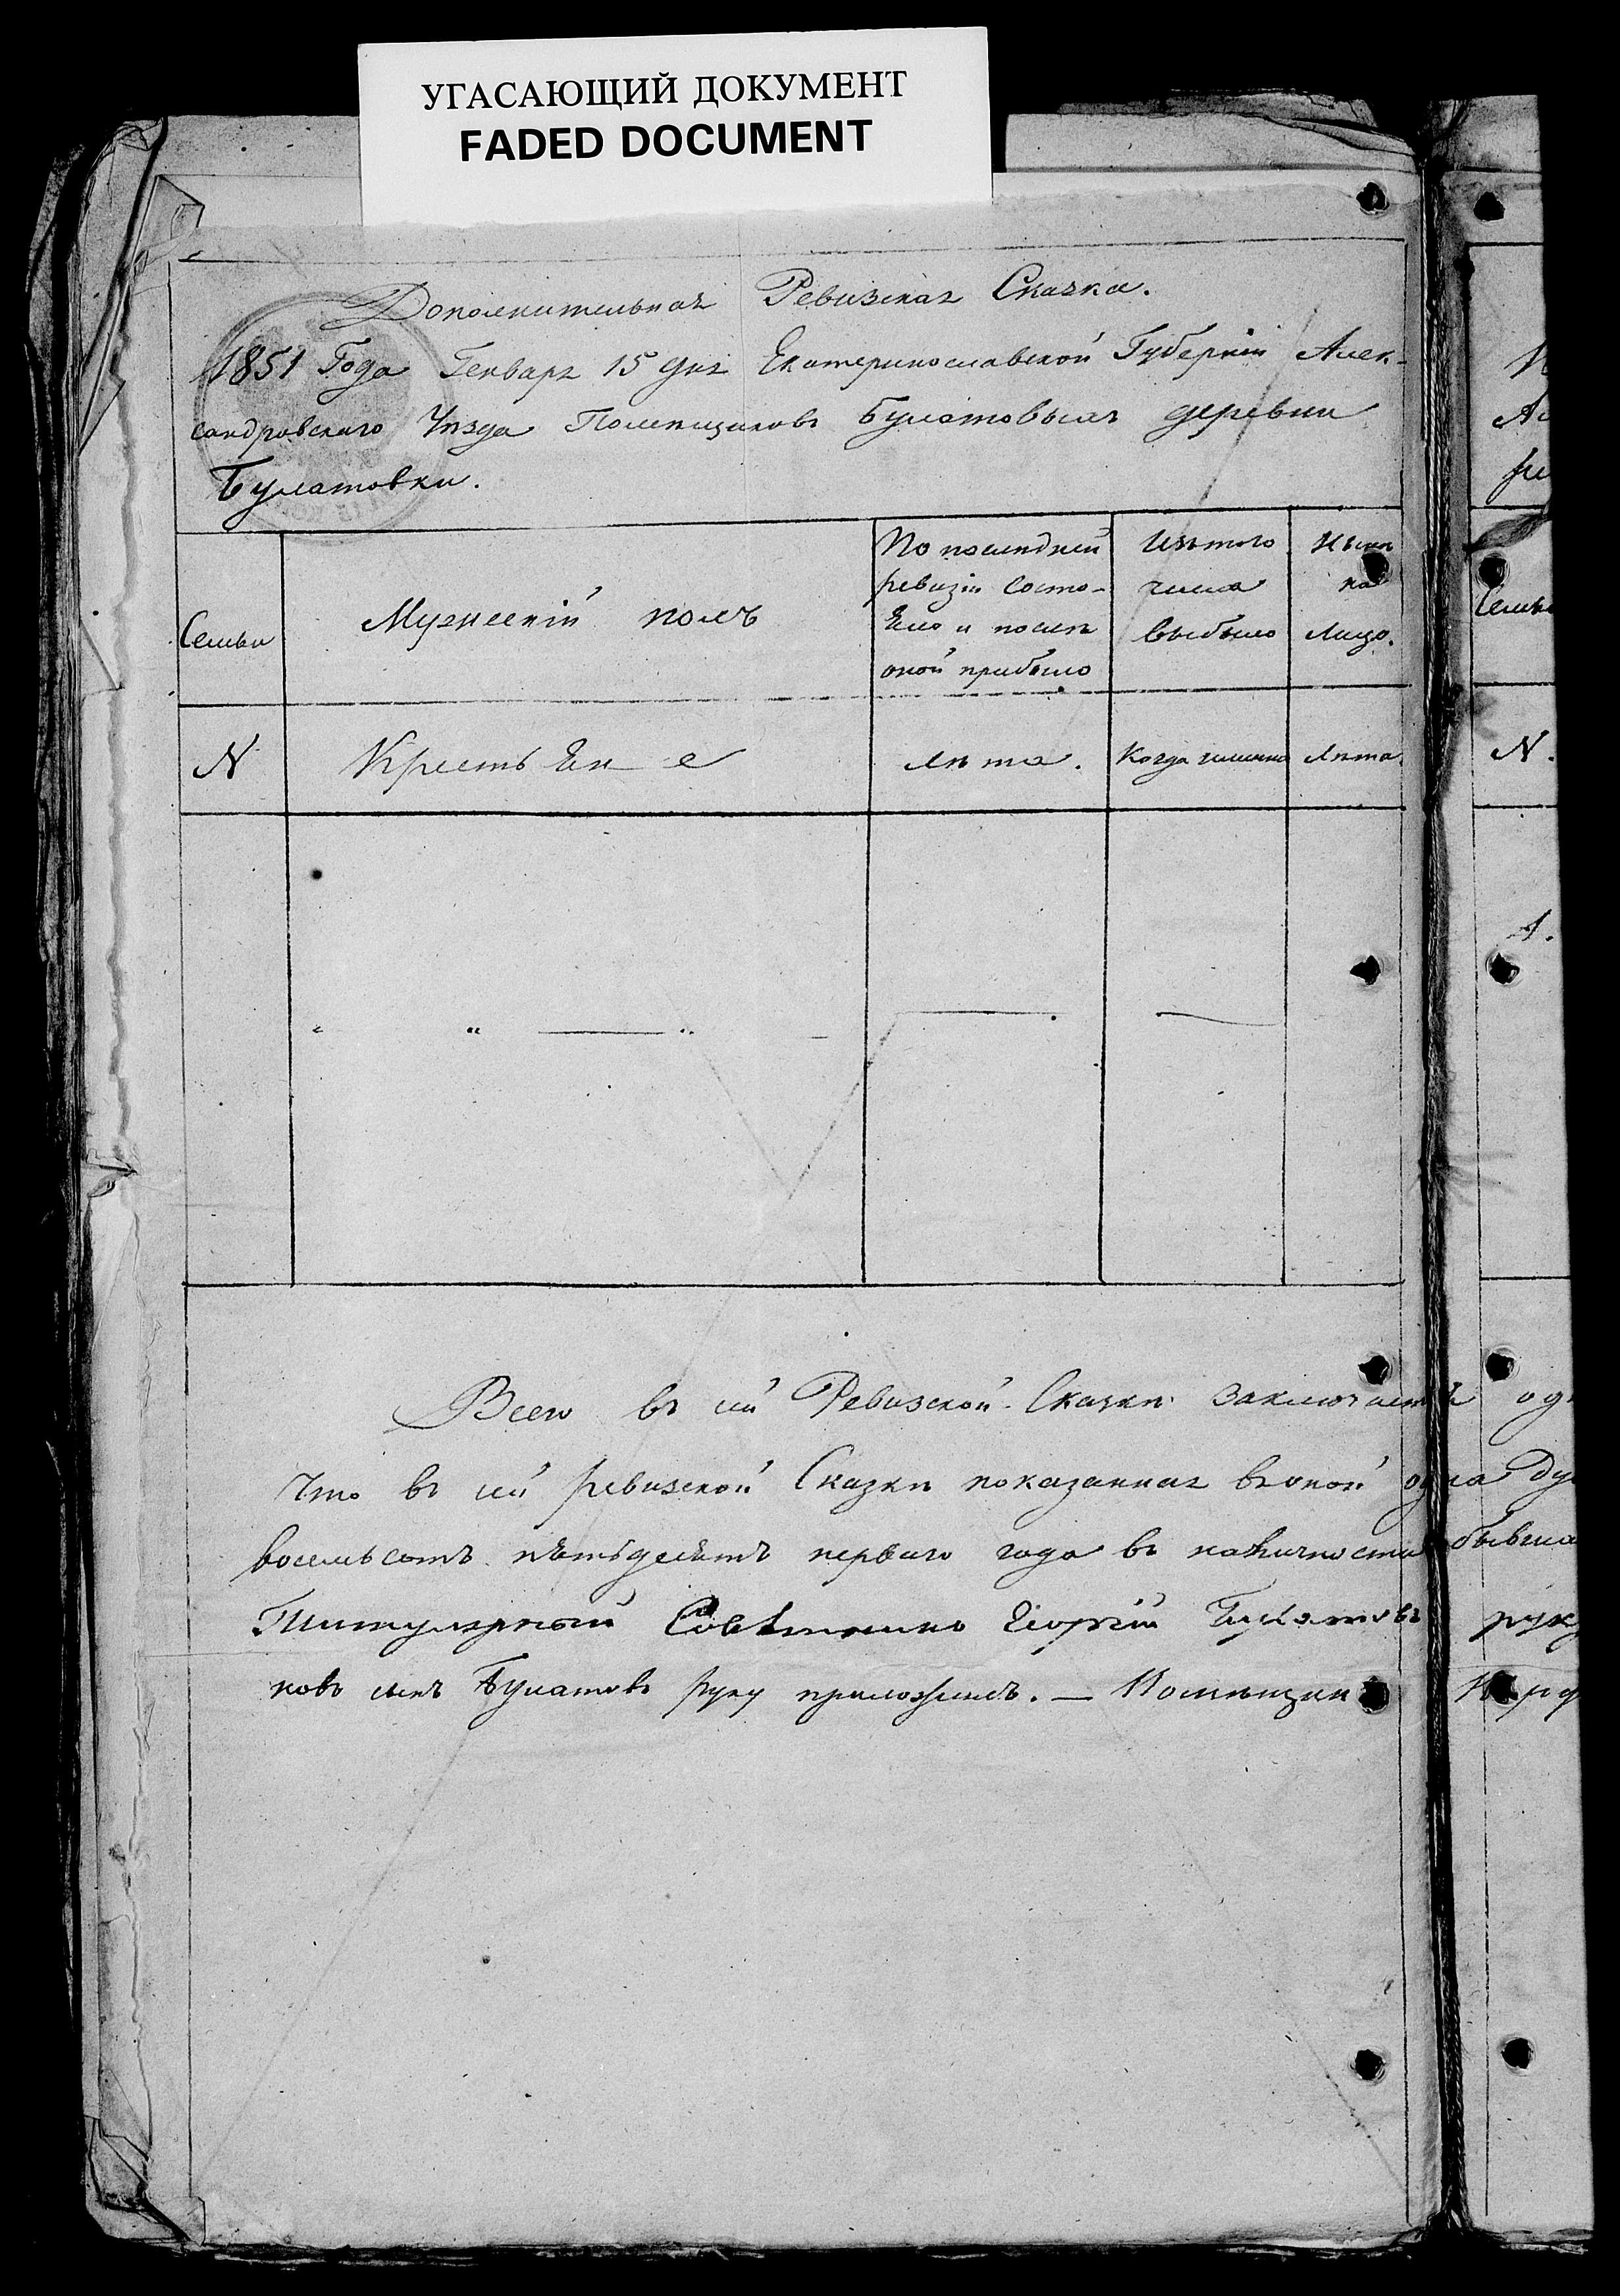 УГАСАЮЩИЙ ДОКУМЕНТ
FADED DOCUMENT
Дополнительная Ревизская Сказка.
1851 Года Генваря 15 дня Екатеринославской Губерніи Алек-
сандровскаго Уѣзда Помѣщиковъ Булатовыхъ деревни
Булатовки.
Семьи
Мужескій полъ
По послѣдней
ревизіи состо-
яло и послѣ
оной прибыло
Изъ того
числа
выбыло
Нынѣ
на
лицо.
Семьи
N
Крестьяне
лѣта.
Когда именно
Лѣта.
N.
1.
Всего въ сей Ревизской Сказкѣ заключается
Что въ сей ревизской Сказкѣ показанная въ оной одна
восемьсотъ пятьдесятъ перваго года въ наличности бывша
Титулярный Совѣтникъ Георгій Булатовъ
новъ сынъ Булатовъ руку приложилъ. — Помѣщик